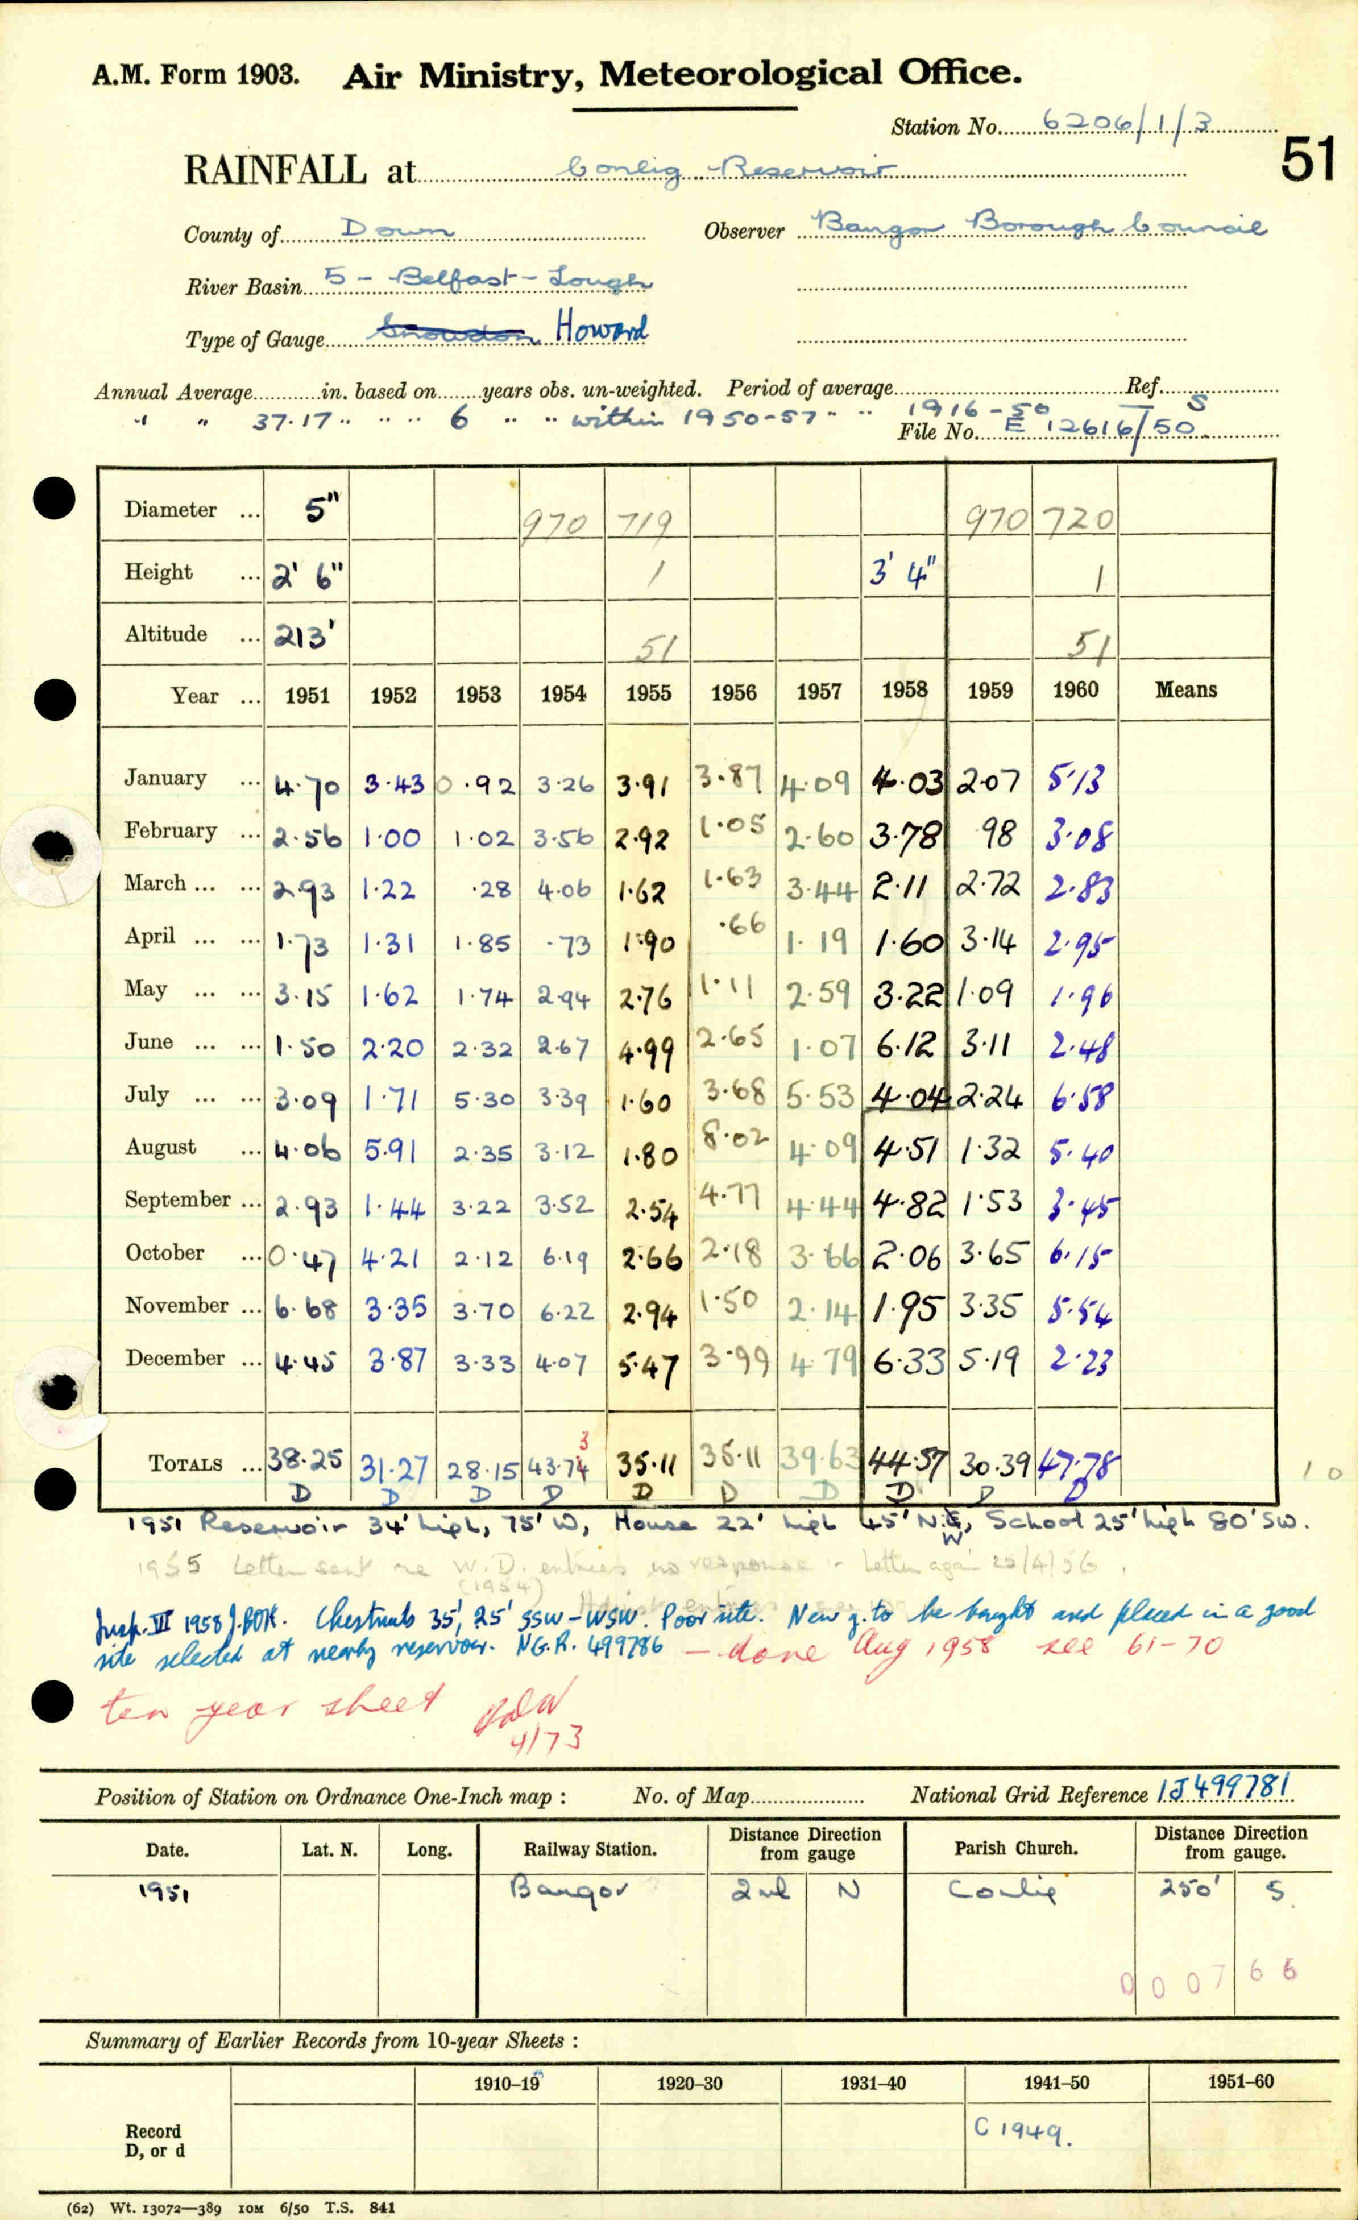 A.M. Form 1903. Air Ministry, Meteorological Office.
Station No. 6206/1/3
51
RAINFALL at Conlig Reservoir
County of Down Observer Bangor Borough Council
River Basin 5 - Belfast - Lough
Type of Gauge Snowdon Howard
Annual Average in. based on years obs. un-weighted. Period of average Ref.
" " 37.17 " " " 6 " " within 1950-57 " " 1916-50 S
File No. E 12616/50
Diameter ... 5" 970 719 970 720
Height ... 2' 6" 1 3' 4" 1
Altitude ... 213' 51 51
Year ... 1951 1952 1953 1954 1955 1956 1957 1958 1959 1960 Means
January ... 4.70 3.43 0.92 3.26 3.91 3.87 4.09 4.03 2.07 5.13
February ... 2.56 1.00 1.02 3.56 2.92 1.05 2.60 3.78 98 3.08
March ... ... 2.93 1.22 .28 4.06 1.62 1.63 3.44 2.11 2.72 2.83
April ... ... 1.73 1.31 1.85 .73 1.90 .66 1.19 1.60 3.14 2.95
May ... ... 3.15 1.62 1.74 2.94 2.76 1.11 2.59 3.22 1.09 1.96
June ... ... 1.50 2.20 2.32 2.67 4.99 2.65 1.07 6.12 3.11 2.48
July ... ... 3.09 1.71 5.30 3.39 1.60 3.68 5.53 4.04 2.24 6.58
August ... 4.06 5.91 2.35 3.12 1.80 8.02 4.09 4.51 1.32 5.40
September ... 2.93 1.44 3.22 3.52 2.54 4.77 4.44 4.82 1.53 3.45
October ... 0.47 4.21 2.12 6.19 2.66 2.18 3.66 2.06 3.65 6.15
November ... 6.68 3.35 3.70 6.22 2.94 1.50 2.14 1.95 3.35 5.54
December ... 4.45 3.87 3.33 4.07 5.47 3.99 4.79 6.33 5.19 2.23
3
TOTALS ... 38.25 31.27 28.15 43.74 35.11 35.11 39.63 44.57 30.39 47.78 10
D D D D D D D D D D
1951 Reservoir 34' high, 75' W, House 22' high 45' N.W, School 25' high 80' SW.
1955 Letter sent re W.D. entries no response Letter again 25/4/56.
(1954)
Insp. III 1958 J.BOK. Chestnuts 35', 25' SSW-WSW. Poor site. New g. to be bought and placed in a good
site selected at nearby reservoir. NG.R. 499786 - done Aug 1958 see 61-70
ten year sheet
4/73
Position of Station on Ordnance One-Inch map : No. of Map National Grid Reference IJ499781
Date. Lat. N. Long. Railway Station. Distance Direction from gauge Parish Church. Distance Direction from gauge.
1951 Bangor 2ml N Conlig 250' S.
000766
Summary of Earlier Records from 10-year Sheets :
1910-19 1920-30 1931-40 1941-50 1951-60
Record C 1949.
D, or d
(62) Wt. 13072-389 10M 6/50 T.S. 841